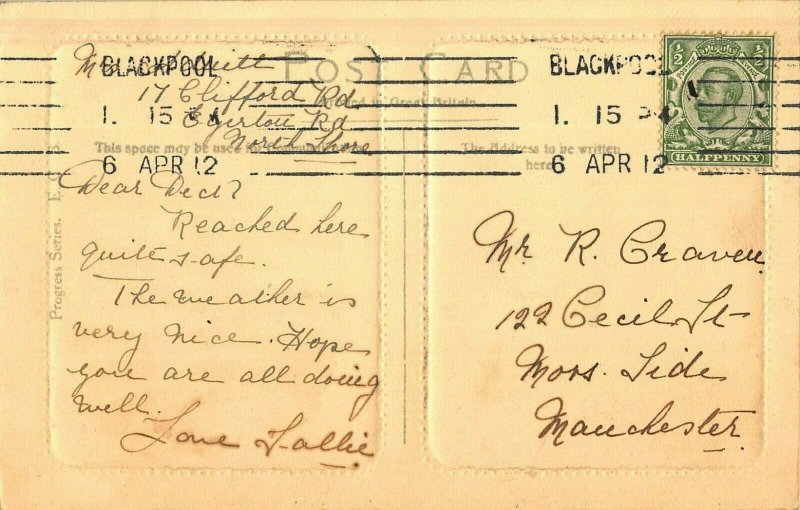 POST CARD
Printed in Great Britain
This space may be used for
The Address to be written
here
Progress Series. E. S.
BLACKPOOL
1. 15
6 APR 12
BLACKPOOL
1. 15
6 APR 12
1/2 1/2
POSTAGE REVENUE
HALFPENNY
17 Clifford Rd
Egerton Rd
North Shore
Dear
Reached here
quite safe.
The weather is
very nice. Hope
you are all doing
well.
Love Sallie
Mr R. Craven
122 Cecil St
Moss Side
Manchester